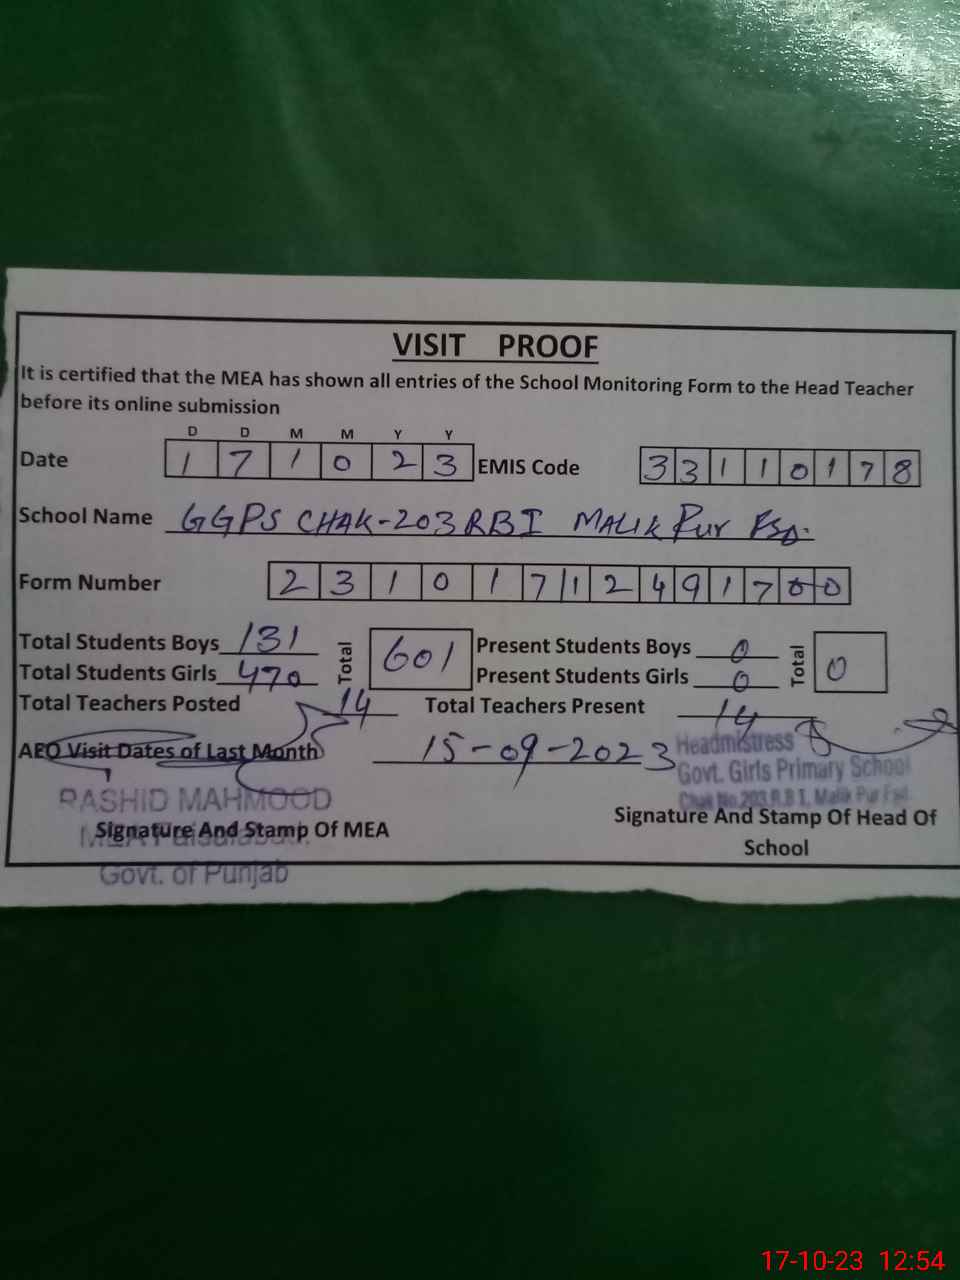 VISIT PROOF
It is certified that the MEA has shown all entries of the School Monitoring Form to the Head Teacher
before its online submission
D D M M Y Y
Date 1 7 1 0 2 3 EMIS Code 3 3 1 1 0 1 7 8
School Name GGPS CHAK-203 RBI MALIK PUR FSD.
Form Number 2 3 1 0 1 7 1 2 4 9 1 7 0 0
Total Students Boys 131 Total 601 Present Students Boys 0 Total 0
Total Students Girls 470 Present Students Girls 0
Total Teachers Posted 14 Total Teachers Present 14
AEO Visit Dates of Last Month 15-09-2023
Headmistress
Govt. Girls Primary School
Chak No.203.R.B I, Malik Pur Fsd.
RASHID MAHMOOD
MEA Faisalabad.
Govt. of Punjab
Signature And Stamp Of MEA
Signature And Stamp Of Head Of
School
17-10-23 12:54